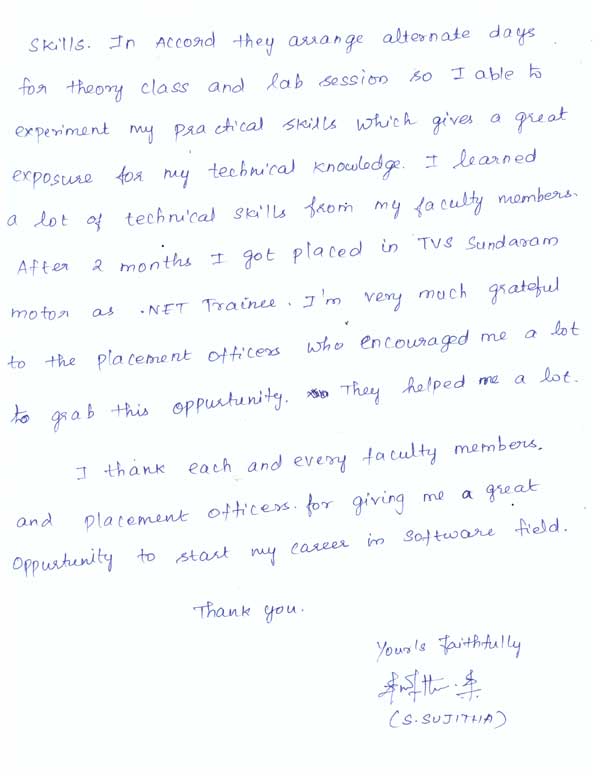 Skills. In Accord they arrange alternate days
for theory class and lab session so I able to
experiment my practical skills which gives a great
exposure for my technical knowledge. I learned
a lot of technical skills from my faculty members.
After 2 months I got placed in TVS Sundaram
motor as .NET Trainee. I'm very much grateful
to the placement officers who encouraged me a lot
to grab this oppurtunity. They helped me a lot.
I thank each and every faculty members.
and placement officers. for giving me a great
oppurtunity to start my career in software field.
Thank you.
Your's faithfully
(S. SUJITHA)